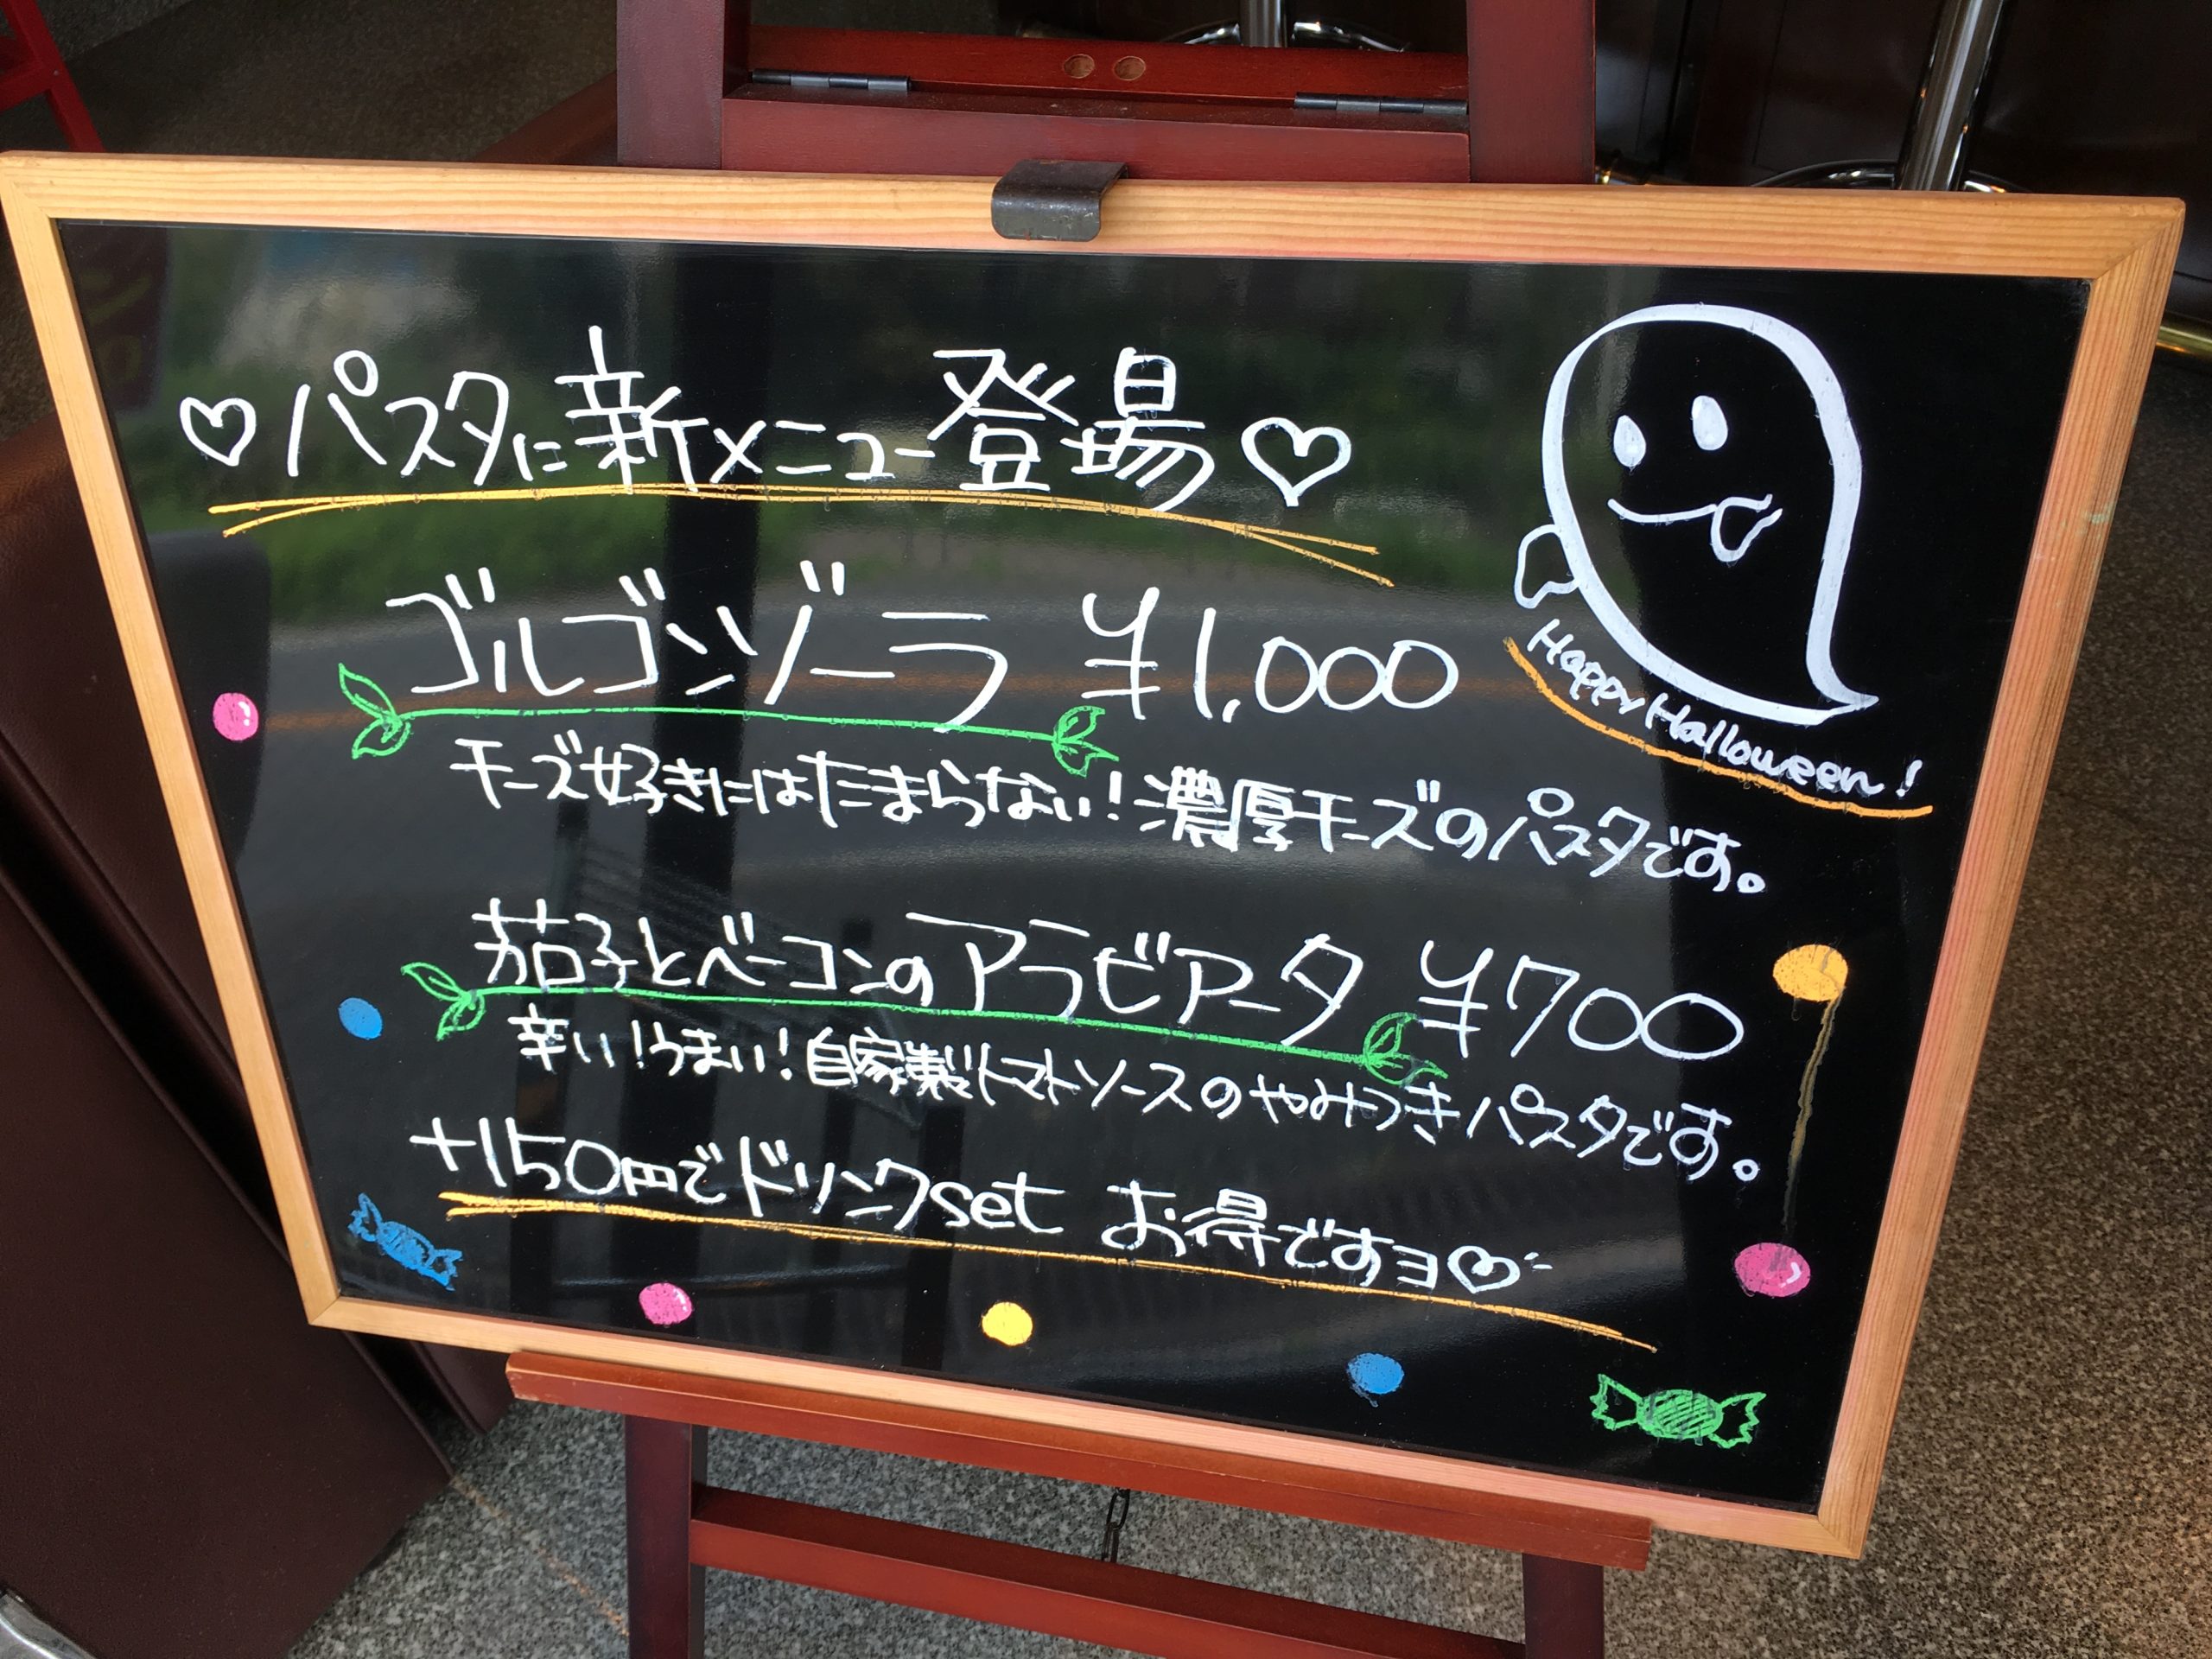 ♡パスタに新メニュー登場♡
ゴルゴンゾーラ ¥1,000
チーズ好きにはたまらない!濃厚チーズのパスタです。
茄子とベーコンのアラビアータ ¥700
辛い!うまい!自家製トマトソースのやみつきパスタです。
+150円でドリンクset お得ですヨ♡
Happy Halloween!